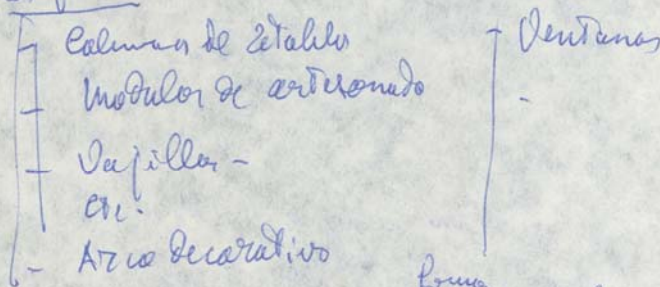 - Columnas de establo
- Modulos de artesonado
- Vajillas -
etc.
- Arco decorativo
- Ventanas
-